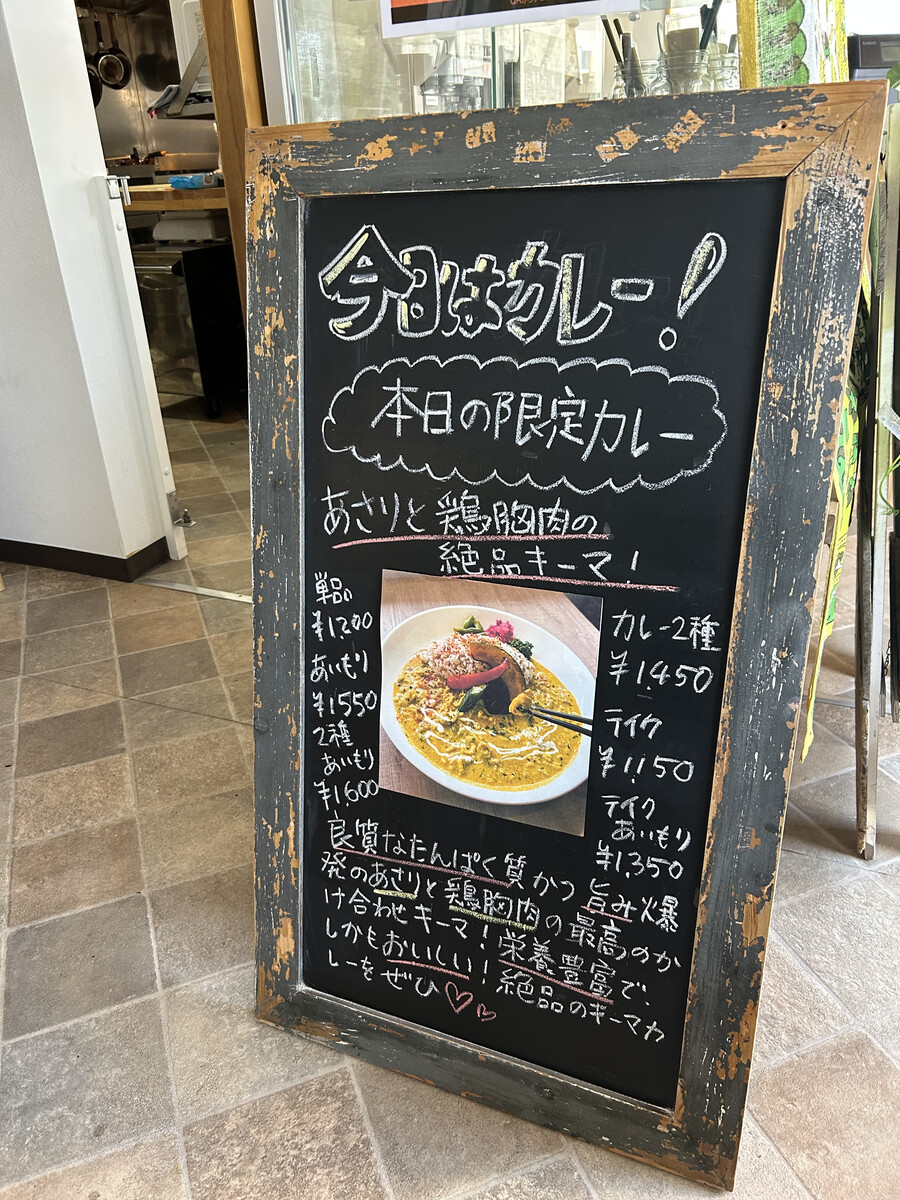 今日はカレー!
本日の限定カレー
あさりと鶏胸肉の
絶品キーマ!
単品
¥1200
あいもり
¥1550
2種
あいもり
¥1,600
カレー2種
¥1,450
テイク
¥1,150
テイク
あいもり
¥1,350
良質なたんぱく質かつ旨み爆
発のあさりと鶏胸肉の最高のか
け合わせキーマ!栄養豊富で、
しかもおいしい!絶品のキーマカ
レーをぜひ♡♡